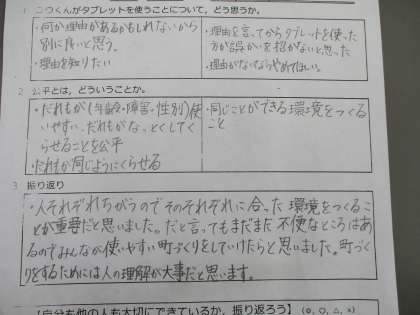 1 こつくんがタブレットを使うことについて、どう思うか。
・何か理由があるかもしれないから
別に良いと思う。
・理由を知りたい
・理由を言ってからタブレットを使った
方が誤かいを招かないと思った
・理由がないならやめてほしい。
2 公平とは、どういうことか。
・だれもが(年齢・障害・性別)使
いやすい、だれもがな、とくしてく
らせることを公平
・だれもが同じようにくらせる
・同じことができる環境をつくる
こと
3 振り返り
・人それぞれちがうのでそのそれぞれに合った環境をつくるこ
とが重要だと思いました。だと言ってもまだまだ不便なところはあ
るのでみんなが使いやすい町づくりをしていけたらと思いました。町づく
りをするためには人の理解が大事だと思います。
【自分も他の人も大切にできているか、振り返ろう】(◎, ○, △, ×)